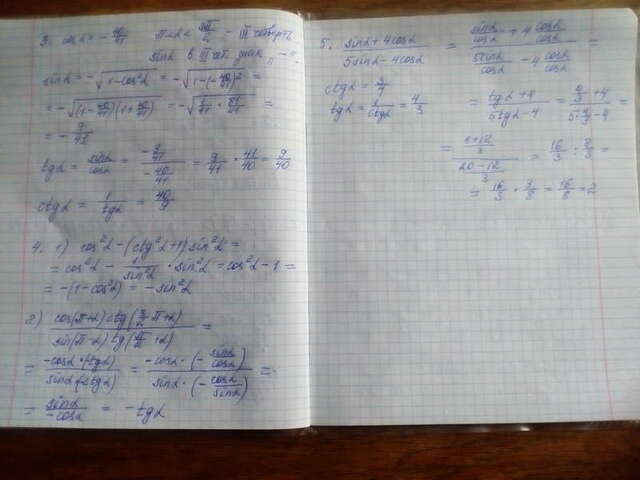 3. cosα = -40/41 π<α<3π/2 - III четверть
sinα в III чет. знак "-".
sinα = -√(1-cos²α) = -√(1-(-40/41)²) =
= -√((1-40/41)(1+40/41)) = -√(1/41 · 81/41) =
= -9/41
tgα = sinα/cosα = (-9/41)/(-40/41) = 9/41 · 41/40 = 9/40
ctgα = 1/tgα = 40/9
4. 1) cos²α-(ctg²α+1)sin²α =
= cos²α - 1/sin²α · sin²α = cos²α-1 =
= -(1-cos²α) = -sin²α
2) cos(π+α)ctg(3/2 π+α) / sin(π-α)tg(π/2+α) =
= -cosα·(-tgα) / sinα·(-ctgα) = -cosα·(-sinα/cosα) / sinα·(-cosα/sinα) =
= sinα/-cosα = -tgα
5. (sinα+4cosα)/(5sinα-4cosα) = (sinα/cosα + 4 cosα/cosα)/(5sinα/cosα - 4 cosα/cosα) =
ctgα = 3/4
tgα = 1/ctgα = 4/3
= (tgα+4)/(5tgα-4) = (4/3+4)/(5·4/3-4) =
= ((4+12)/3)/((20-12)/3) = 16/3 · 3/8 =
= 16/3 · 3/8 = 16/8 = 2